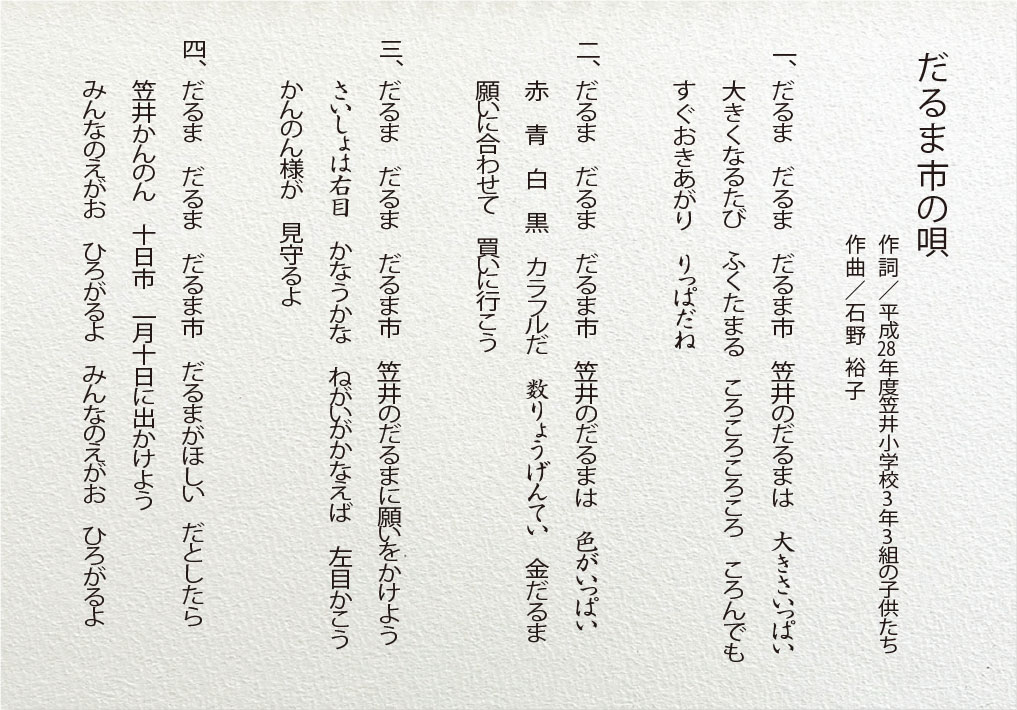 だるま市の唄
作詞／平成28年度笠井小学校3年3組の子供たち
作曲／石野 裕子
一、だるま　だるま　だるま市　笠井のだるまは　大きさいっぱい
大きくなるたび　ふくたまる　ころころころころ　ころんでも
すぐおきあがり　りっぱだね
二、だるま　だるま　だるま市　笠井のだるまは　色がいっぱい
赤　青　白　黒　カラフルだ　数りょうげんてい　金だるま
願いに合わせて　買いに行こう
三、だるま　だるま　だるま市　笠井のだるまに願いをかけよう
さいしょは右目　かなうかな　ねがいがかなえば　左目かこう
かんのん様が　見守るよ
四、だるま　だるま　だるま市　だるまがほしい　だとしたら
笠井かんのん　十日市　一月十日に出かけよう
みんなのえがお　ひろがるよ　みんなのえがお　ひろがるよ